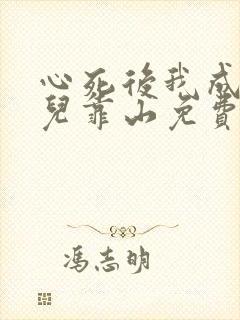 心死後我成
兒靠山免費
馮志明